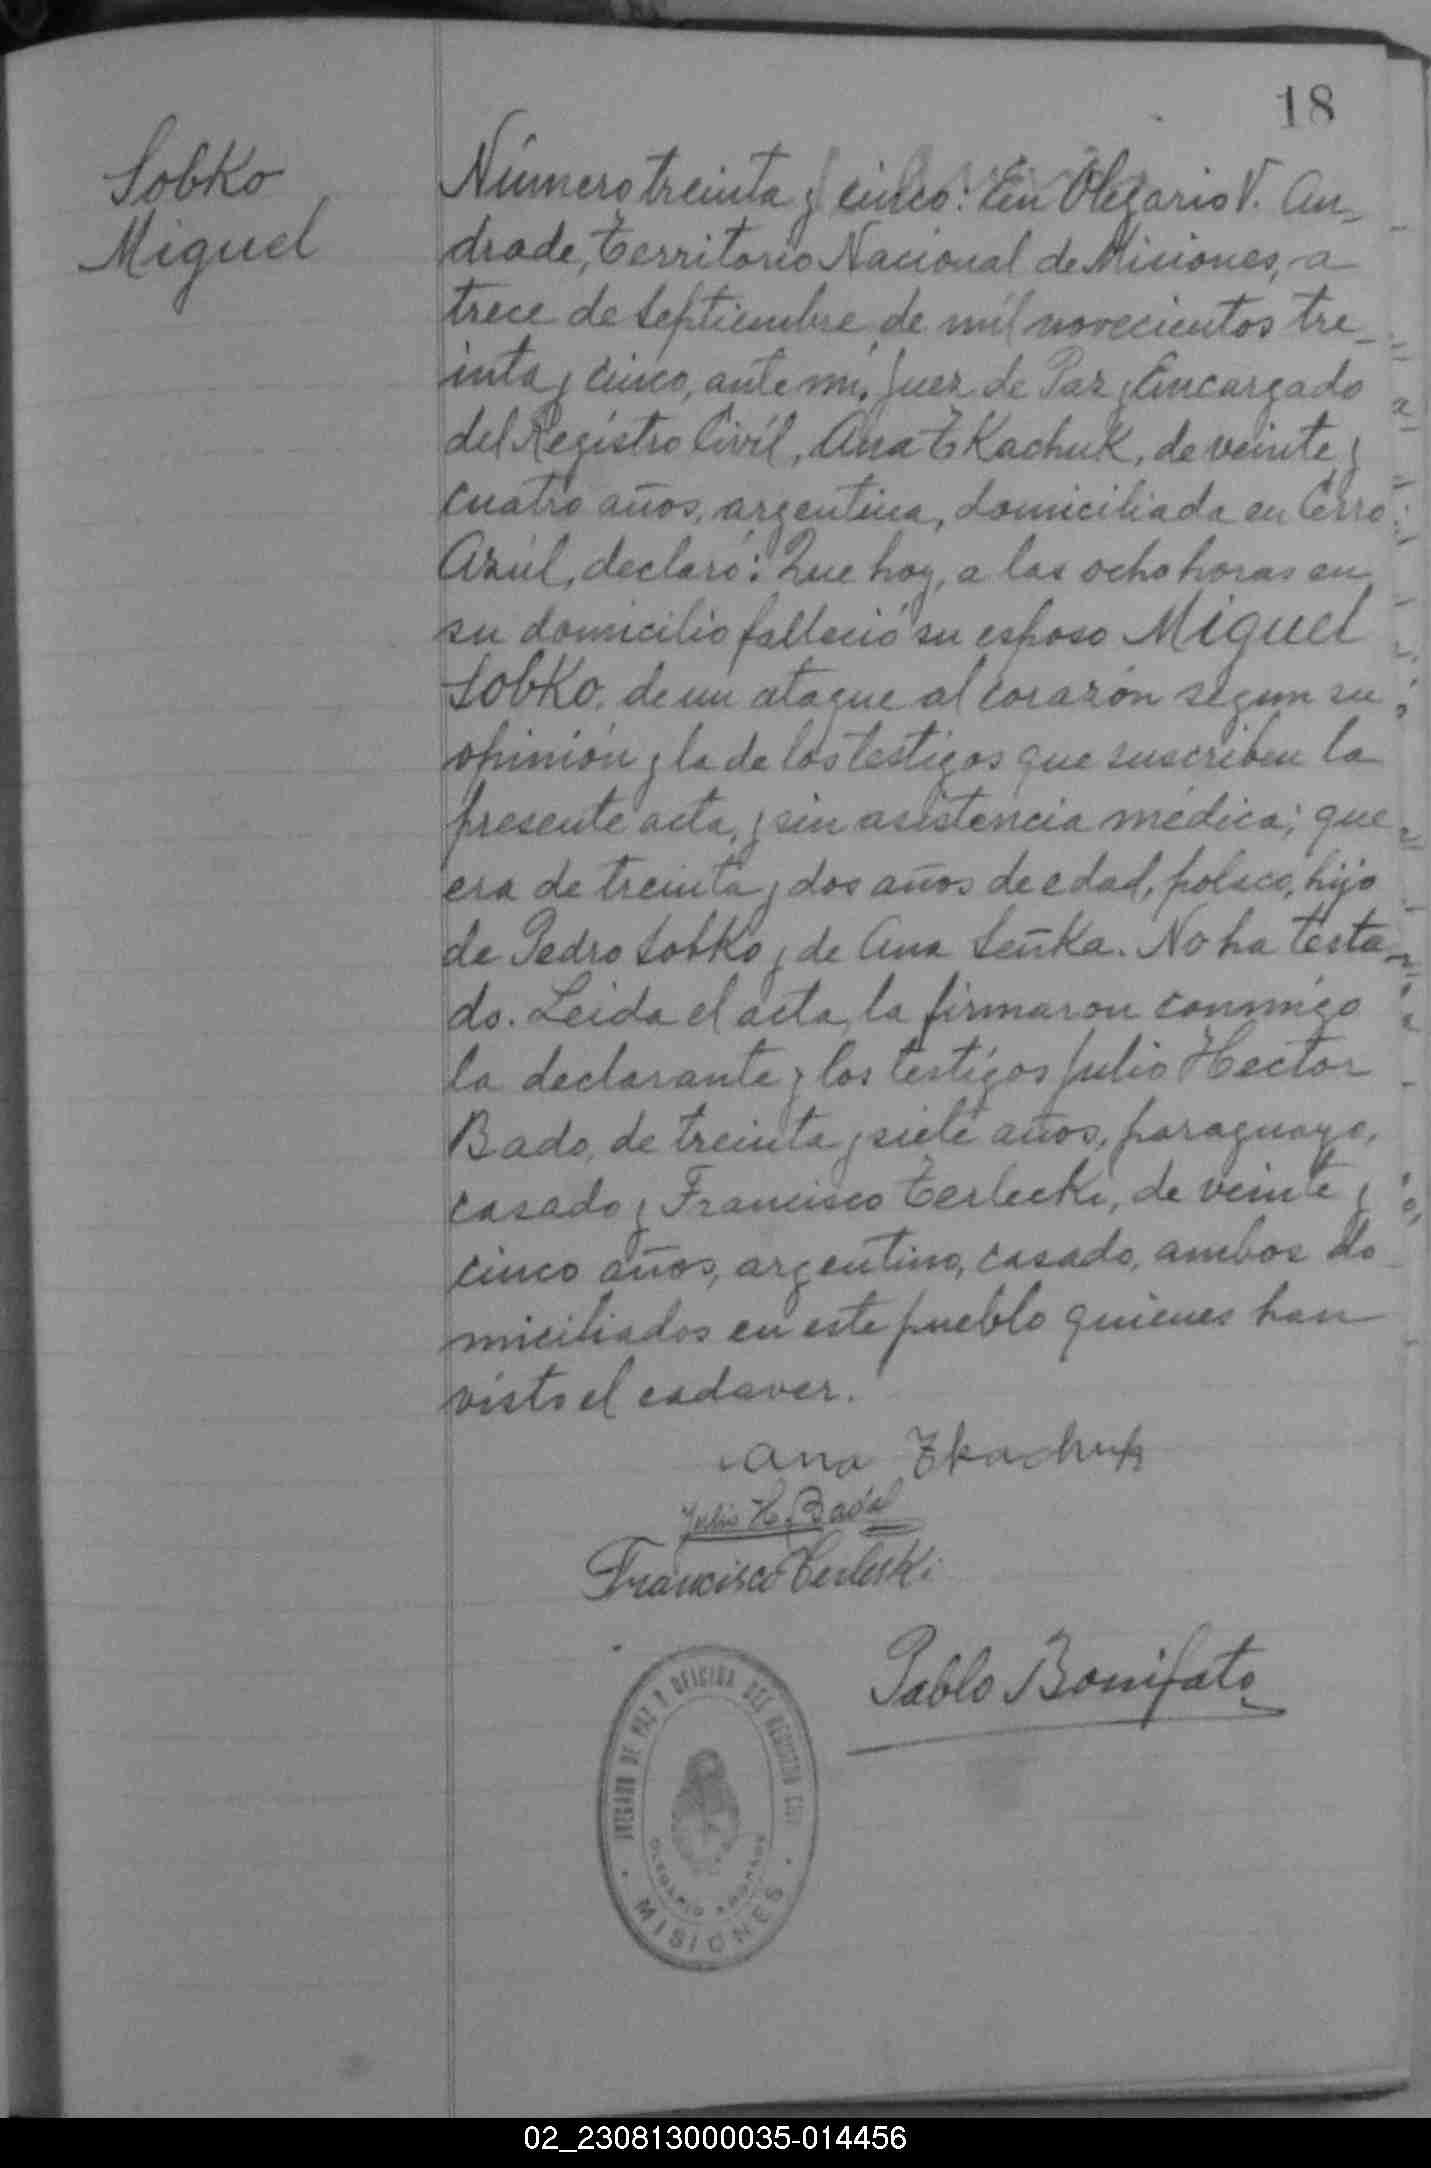 18
Sobko
Miguel
Número treinta y cinco: En Olegario V. An-
drade, Territorio Nacional de Misiones, a
trece de Septiembre de mil novecientos tre-
inta y cinco, ante mí, Juez de Paz y Encargado
del Registro Civil, Ana Tkachuk, de veinte y
cuatro años, argentina, domiciliada en Cerro
Azúl, declaró: Que hoy, a las ocho horas en
su domicilio falleció su esposo Miguel
Sobko, de un ataque al corazón segun su
opinión y la de los testigos que suscriben la
presente acta, y sin asistencia médica; que
era de treinta y dos años de edad, polaco, hijo
de Pedro Sobko y de Ana Señka. No ha testa-
do. Leida el acta, la firmaron conmigo
la declarante y los testigos Julio Hector
Bado, de treinta y siete años, paraguayo,
casado y Francisco Terlecki, de veinte y
cinco años, argentino, casado, ambos do-
miciliados en este pueblo quienes han
visto el cadaver.
Ana Tkachuk
Julio H. Bado
Francisco Terleski
Pablo Bonifato
JUZGADO DE PAZ Y OFICINA DEL REGISTRO CIVIL
OLEGARIO ANDRADE
MISIONES
02_230813000035-014456